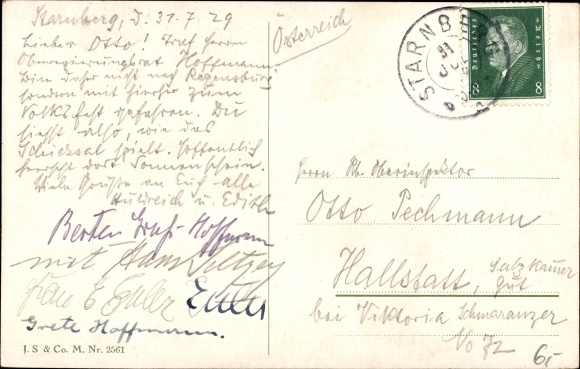 Starnberg, d. 31.7.29
Lieber Otto! Traf Herrn
Oberregierungsrat Hoffmann.
Bin daher nicht nach Regensburg
sondern mit hierher zum
Volksfest gefahren. Du
siehst also, wie das
Schicksal spielt. Hoffentlich
herrscht dort Sonnenschein.
Viele Grüße an Euch alle
Huldreich u. Edith
Berten Hoffmann
mit Hans
Grete Hoffmann.
J. S & Co. M. Nr. 2561
Österreich
STARNBERG
31
Deutsches Reich
8 8
Herrn Oberinspektor
Otto Pechmann
Hallstatt, Salzkammer
gut
bei Viktoria Schmaranzer
No 72
6,-